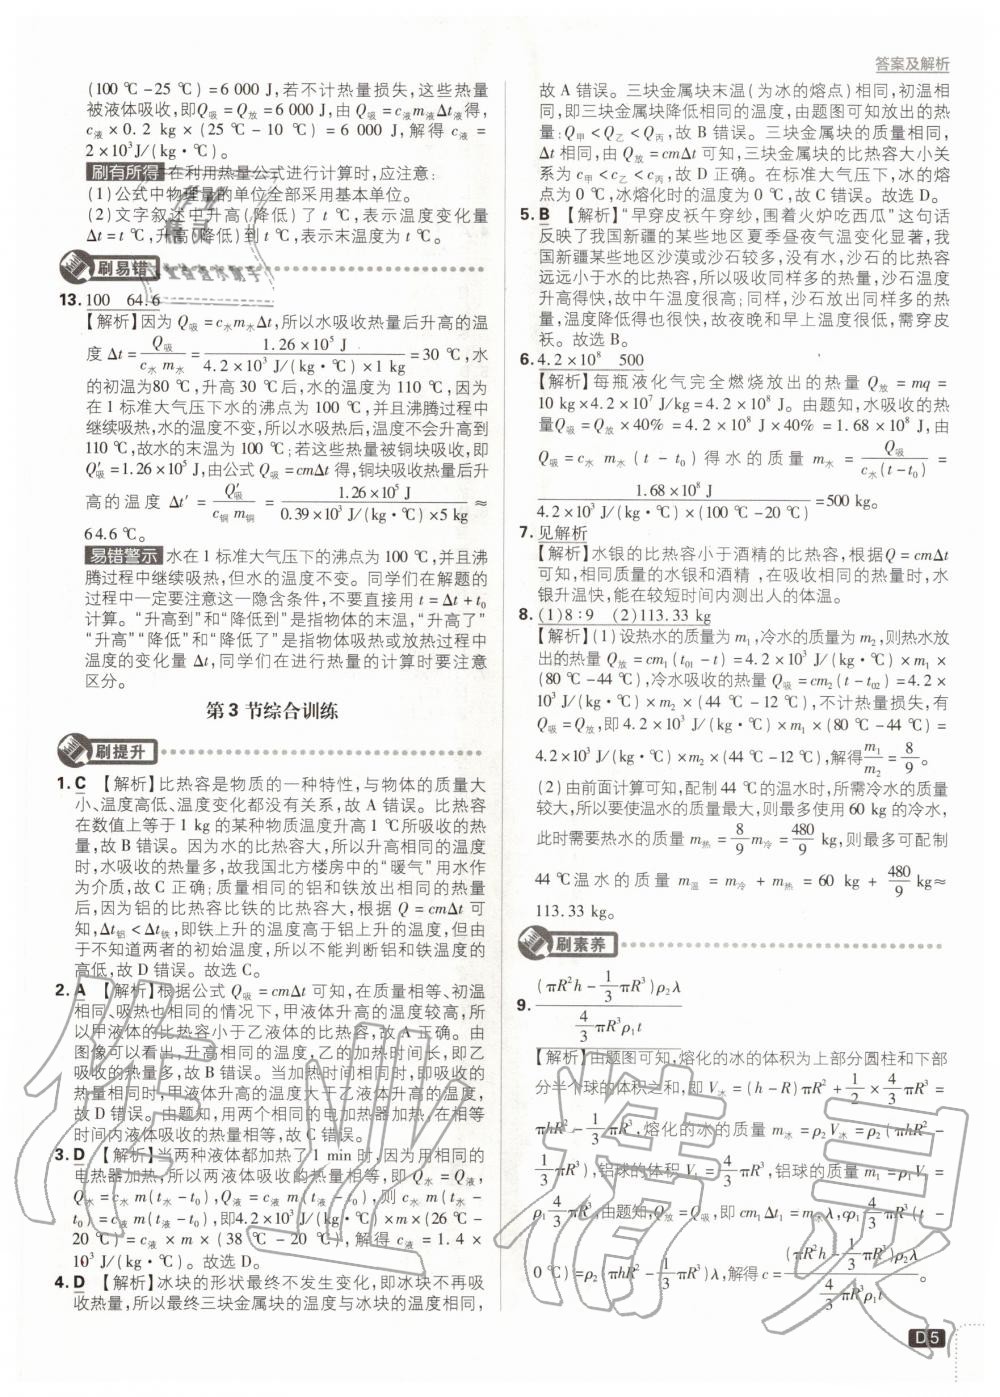 答案及解析
(100 ℃-25 ℃)=6 000 J,若不计热量损失,这些热量
被液体吸收,即Q吸=Q放=6 000 J,由 Q吸=c液m液Δt液得,
c液×0.2 kg×(25 ℃-10 ℃)=6 000 J,解得 c液=
2×10³J/(kg·℃)。
刷有所得 在利用热量公式进行计算时,应注意:
(1)公式中物理量的单位全部采用基本单位。
(2)文字叙述中升高(降低)了 t ℃,表示温度变化量
Δt=t ℃,升高(降低)到 t ℃,表示末温度为 t ℃。
刷易错
13. 100 64.6
【解析】因为 Q吸=c水m水Δt,所以水吸收热量后升高的温
度 Δt=Q吸/(c水 m水)=1.26×10⁵ J/(4.2×10³ J/(kg·℃)×1 kg)=30 ℃,水
的初温为80 ℃,升高 30 ℃后,水的温度为 110 ℃,因为
在 1 标准大气压下水的沸点为 100 ℃,并且沸腾过程中
继续吸热,水的温度不变,所以水吸热后,温度不会升高到
110 ℃,故水的末温为 100 ℃;若这些热量被铜块吸收,即
Q′吸=1.26×10⁵ J,由公式 Q吸=cmΔt 得,铜块吸收热量后升
高的温度 Δt′=Q′吸/(c铜 m铜)=1.26×10⁵ J/(0.39×10³ J/(kg·℃)×5 kg)≈
64.6 ℃。
易错警示 水在 1 标准大气压下的沸点为 100 ℃,并且沸
腾过程中继续吸热,但水的温度不变。同学们在解题的
过程中一定要注意这一隐含条件,不要直接用 t=Δt+t₀
计算。“升高到”和“降低到”是指物体的末温,“升高了”
“升高”“降低”和“降低了”是指物体吸热或放热过程中
温度的变化量 Δt,同学们在进行热量的计算时要注意
区分。
第 3 节综合训练
刷提升
1. C 【解析】比热容是物质的一种特性,与物体的质量大
小、温度高低、温度变化都没有关系,故 A 错误。比热容
在数值上等于 1 kg的某种物质温度升高1 ℃所吸收的热
量,故 B 错误。因为水的比热容大,所以升高相同的温度
时,水吸收的热量多,故我国北方楼房中的“暖气”用水作
为介质,故 C 正确;质量相同的铝和铁放出相同的热量
后,因为铝的比热容比铁的比热容大,根据 Q=cmΔt 可
知,Δt铝<Δt铁,即铁上升的温度高于铝上升的温度,但由
于不知道两者的初始温度,所以不能判断铝和铁温度的
高低,故 D 错误。故选 C。
2. A 【解析】根据公式 Q吸=cmΔt 可知,在质量相等、初温
相同、吸热也相同的情况下,甲液体升高的温度较高,所
以甲液体的比热容小于乙液体的比热容,故 A 正确。由
图像可以看出,升高相同的温度,乙的加热时间长,即乙
吸收的热量多,故 B 错误。当加热时间相同时,即吸收的
热量相同时,甲液体升高的温度大于乙液体升高的温度,
故 C、D 错误。由题知,用两个相同的电加热器加热,在相等
时间内液体吸收的热量相等,故 D 错误。
3. D 【解析】当两种液体都加热了 1 min 时,因为用相同的
电热器加热,所以两液体吸收的热量相等,即 Q水=Q液,
Q水=c水 m(t水-t₀),Q液=c液 m(t液-t₀),则 c水 m(t水-
t₀)=c液 m(t液-t₀),即4.2×10³ J/(kg·℃)×m×(26 ℃-
20 ℃)=c液×m×(38 ℃-20 ℃),解得 c液=1.4×
10³ J/(kg·℃)。故选 D。
4. D 【解析】冰块的形状最终不发生变化,即冰块不再吸
收热量,所以最终三块金属块的温度与冰块的温度相同,
故 A 错误。三块金属块末温(为冰的熔点)相同,初温相
同,即三块金属块降低相同的温度,由题图可知放出的热
量:Q甲<Q乙<Q丙,故 B 错误。三块金属块的质量相同,
Δt 相同,由 Q=cmΔt 可知,三块金属块的比热容大小关
系为 c甲<c乙<c丙,故 D 正确。在标准大气压下,冰的熔
点为 0 ℃,冰熔化时的温度为 0 ℃,故 C 错误。故选 D。
5. B 【解析】“早穿皮袄午穿纱,围着火炉吃西瓜”这句话
反映了我国新疆的某些地区夏季昼夜气温变化显著,我
国新疆的某些地区沙漠或沙石较多,没有水,沙石的比热容
远远小于水的比热容,所以吸收同样多的热量,沙石温度
升高得快,故中午温度很高;同样,沙石放出同样多的热
量,温度降低得也很快,故夜晚和早上温度很低,需穿皮
袄。故选 B。
6. 4.2×10⁸ 500
【解析】每瓶液化气完全燃烧放出的热量 Q放=mq=
10 kg×4.2×10⁷ J/kg=4.2×10⁸ J。由题知,水吸收的热
量Q吸=Q放×40%=4.2×10⁸ J×40%=1.68×10⁸ J,由
Q吸=c水 m水(t-t₀)得水的质量 m水=Q吸/(c水(t-t₀))=
1.68×10⁸ J/(4.2×10³ J/(kg·℃)×(100 ℃-20 ℃))=500 kg。
7. 见解析
【解析】水银的比热容小于酒精的比热容,根据Q=cmΔt
可知,相同质量的水银和酒精,在吸收相同的热量时,水
银升温快,能在较短时间内测出人的体温。
8. (1)8∶9 (2)113.33 kg
【解析】(1)设热水的质量为 m₁,冷水的质量为 m₂,则热水放
出的热量 Q放=cm₁(t₀₁-t)=4.2×10³ J/(kg·℃)×m₁×
(80 ℃-44 ℃),冷水吸收的热量 Q吸=cm₂(t-t₀₂)=4.2×
10³ J/(kg·℃)×m₂×(44 ℃-12 ℃),不计热量损失,有
Q吸=Q放,即4.2×10³ J/(kg·℃)×m₁×(80 ℃-44 ℃)=
4.2×10³ J/(kg·℃)×m₂×(44 ℃-12 ℃),解得m₁/m₂=8/9。
(2)由前面计算可知,配制 44 ℃的温水时,所需冷水的质量
较大,所以要使温水的质量最大,则最多使用 60 kg 的冷水,
此时需要热水的质量 m热=8/9m冷=480/9 kg,则最多可配制
44 ℃温水的质量 m温=m冷+m热=60 kg+480/9 kg≈
113.33 kg。
刷素养
9. (πR²h-1/3πR³)ρ₂λ/(4/3πR³ρ₁t)
【解析】由题图可知,熔化的冰的体积为上部分圆柱和下部
分半个球的体积之和,即 V冰=(h-R)πR²+1/2×4/3πR³=
πhR²-1/3πR³,熔化的冰的质量 m冰=ρ₂V冰=ρ₂(πhR²-
1/3πR³),铝球的体积 V铝=4/3πR³,铝球的质量 m₁=ρ₁V铝=
ρ₁4/3πR³,由题知,Q放=Q吸,即 cm₁Δt₁=m冰λ,cρ₁4/3πR³(t-
0 ℃)=ρ₂(πhR²-1/3πR³)λ,解得 c=(πR²h-1/3πR³)ρ₂λ/(4/3πR³ρ₁t)。
作业精灵
D5